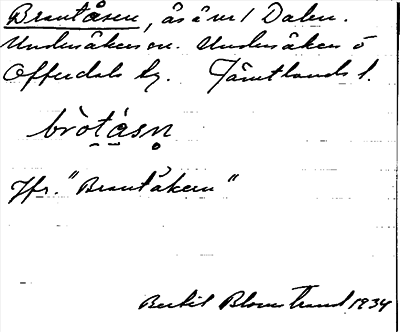 Brantåsen, ås ä nr 1 Dalen.
Undersåkers sn. Undersåkers o
Offerdals tg. Jämtlands l.
bròtásn
Jfr. "Brantåkern"
Bertil Blomstrand 1934